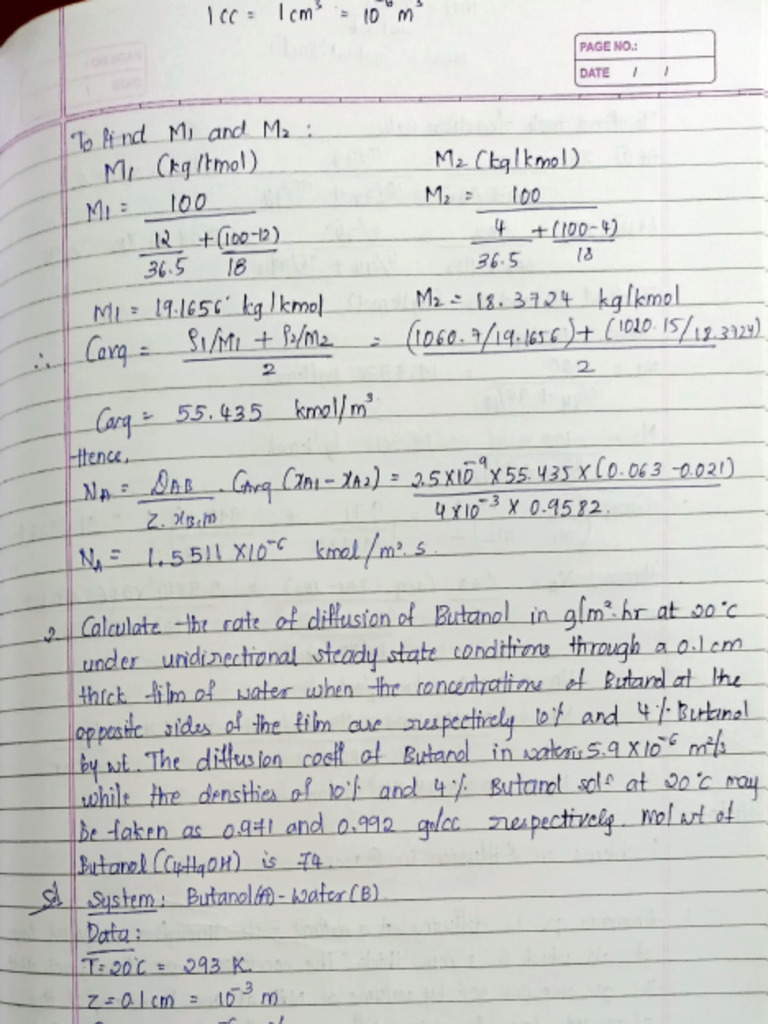 1 cc = 1 cm³ = 10⁻⁶ m³
PAGE NO.:
DATE / /
To find M1 and M2 :
M1 (kg/kmol) M2 (kg/kmol)
M1 = 100 / (12/36.5 + (100-12)/18) M2 = 100 / (4/36.5 + (100-4)/18)
M1 = 19.1656 kg/kmol M2 = 18.3724 kg/kmol
∴ Cavg = (ρ1/M1 + ρ2/M2) / 2 = ((1060.7/19.1656) + (1020.15/18.3724)) / 2
Cavg = 55.435 kmol/m³
Hence,
NA = DAB / (Z. xB,m) . Cavg (xA1 - xA2) = (2.5×10⁻⁹ × 55.435 × (0.063 - 0.021)) / (4×10⁻³ × 0.9582.)
NA = 1.5511 ×10⁻⁶ kmol/m². s.
2. Calculate the rate of diffusion of Butanol in g/m².hr at 20°C
under unidirectional steady state conditions through a 0.1 cm
thick film of water when the concentrations of Butanol at the
opposite sides of the film are respectively 10% and 4% Butanol
by wt. The diffusion coeff of Butanol in water is 5.9 ×10⁻⁶ m²/s
while the densities of 10% and 4% Butanol solⁿ at 20°C may
be taken as 0.971 and 0.992 gm/cc respectively. mol wt of
Butanol (C4H9OH) is 74.
Sol System: Butanol(A) - Water(B)
Data:
T = 20°C = 293 K.
Z = 0.1 cm = 10⁻³ m